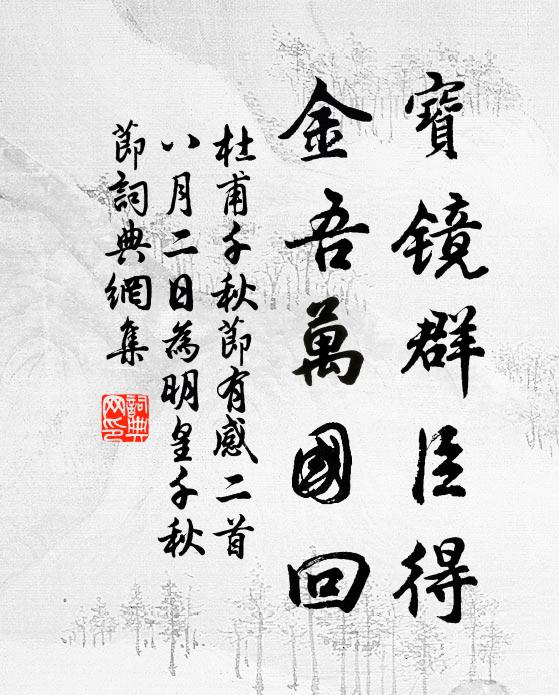 寶鏡群臣得
金吾萬國回
杜甫千秋節有感二首
八月二日為明皇千秋
節詞典網集
詞典網印